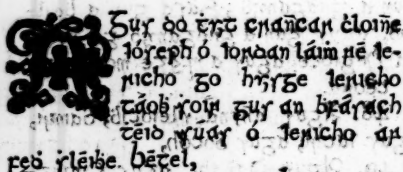 AGus do ṫuit crañcar ċloiñe
Ióseph ó Iordan láiṁ ré Ie-
richo go huisge Iericho
táoḃ soir gus an ḃfásach
ṫéid suas ó Iericho ar
feḋ ṡléiḃe Bétel,